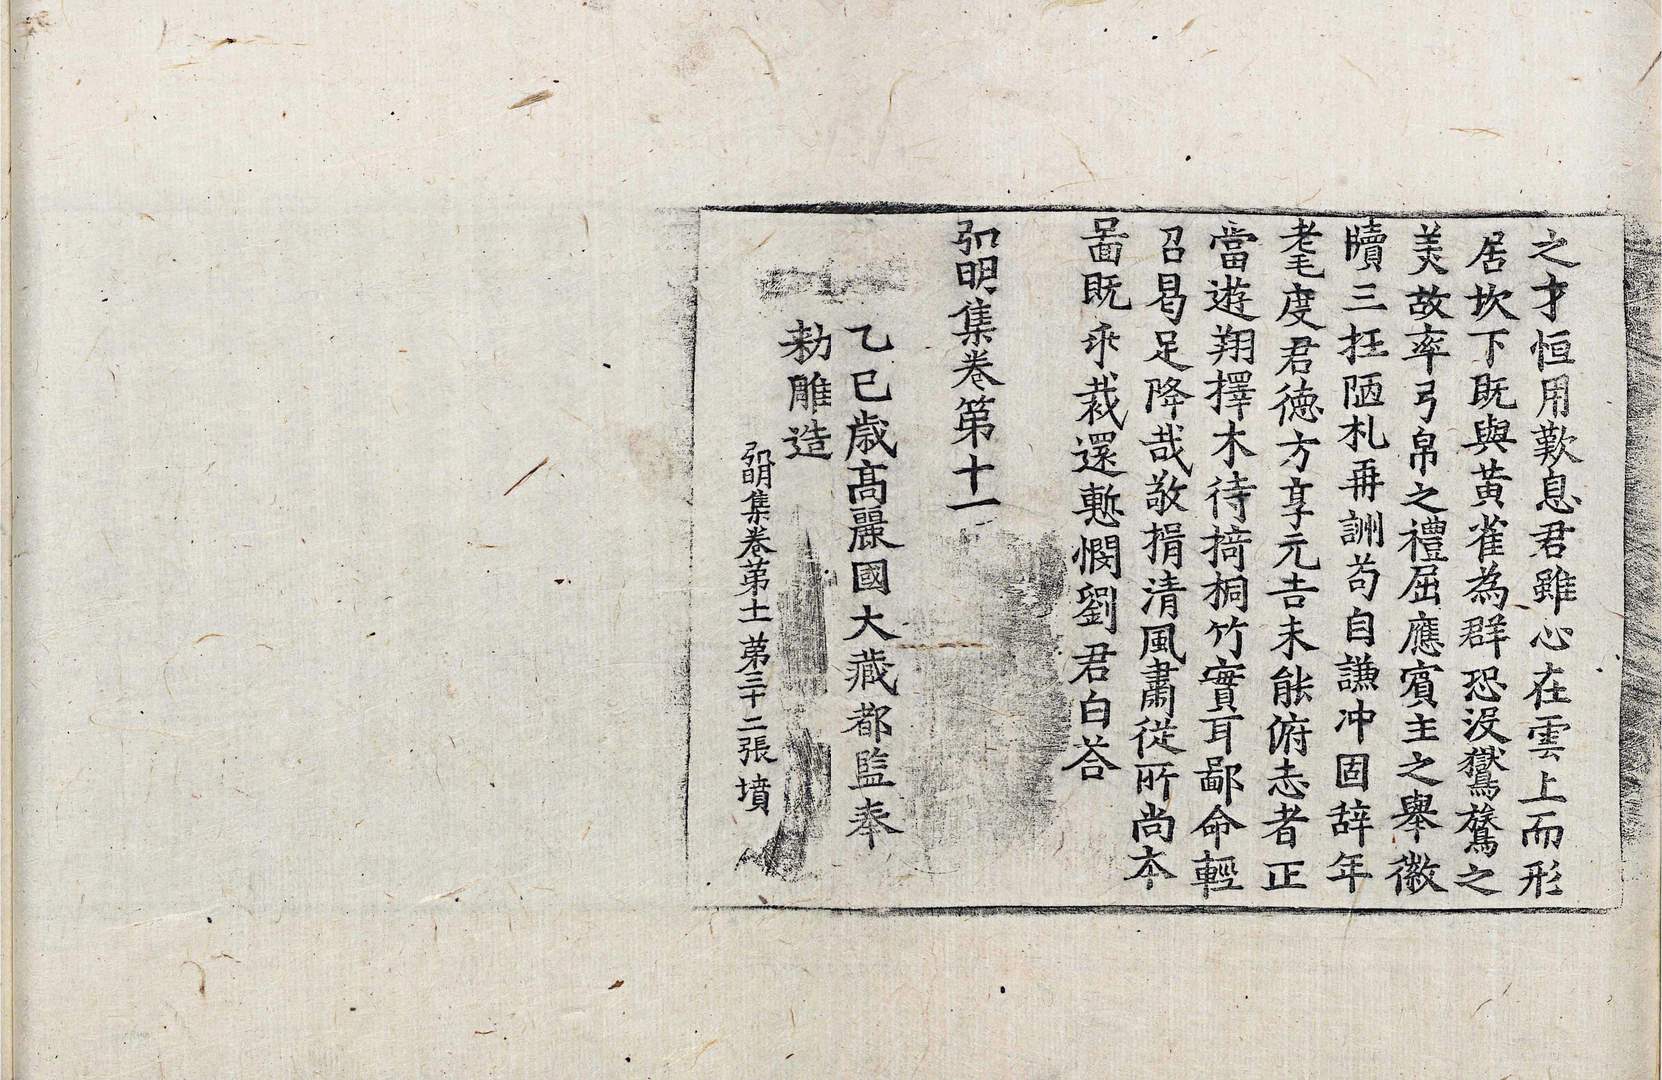 之才恒用歎息君雖心在雲上而形
居坎下既與黃雀為群恐沒鸑鷟之
美故率弓帛之禮屈應賓主之舉徽
牘三抂陋札再詶苟自謙冲固辞年
耄度君德方享元吉未能俯志者正
當遊翔擇木待掎桐竹實耳鄙命輕
召曷足降哉敬揖清風肅從所尚本
啚既乖裁還慙憫劉君白荅
弘明集卷第十一
乙巳歳髙麗國大藏都監奉
勑雕造
弘明集卷苐十一 苐三十二張 墳